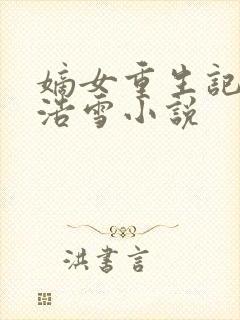 嫡女重生記
浩雪小說
洪書言